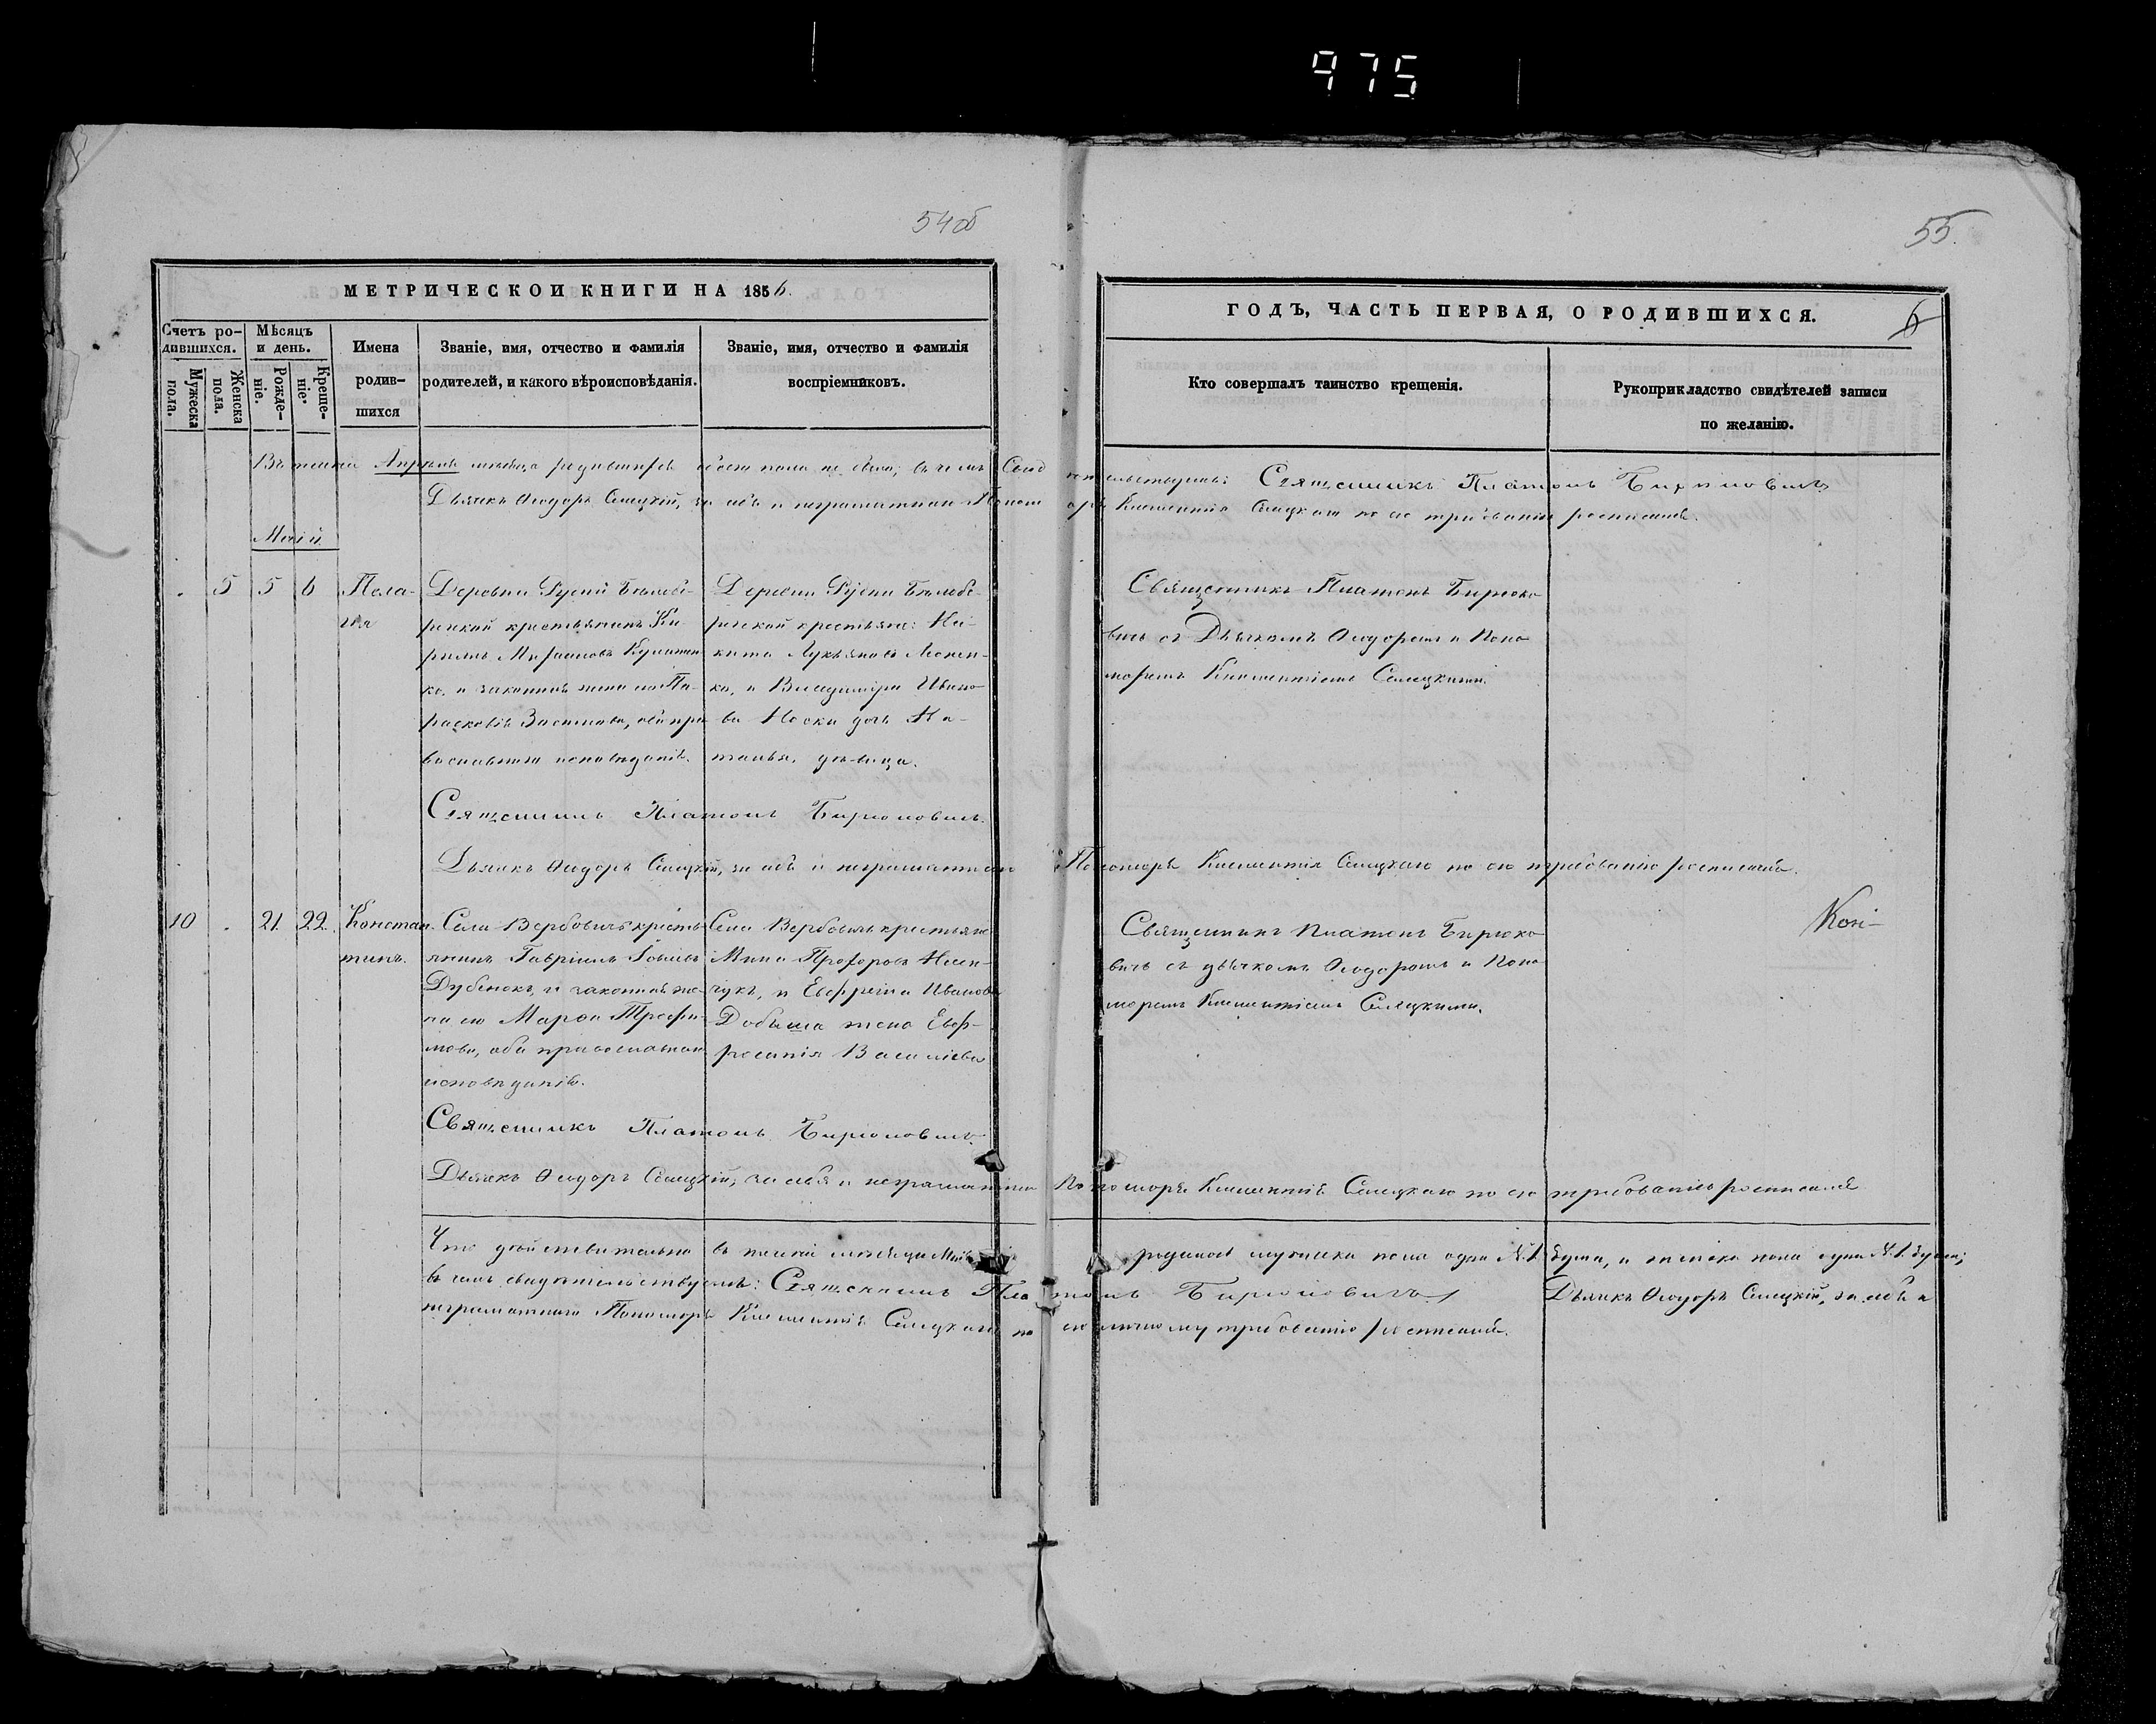 975
54 об
55.
МЕТРИЧЕСКОЙ КНИГИ НА 1856.
ГОДЪ, ЧАСТЬ ПЕРВАЯ, О РОДИВШИХСЯ.
6
Счетъ ро-
дившихся.
Мужеска
пола.
Женска
пола.
Мѣсяцъ
и день.
Рожде-
ніе.
Креще-
ніе.
Имена
родив-
шихся
Званіе, имя, отчество и фамилія
родителей, и какого вѣроисповѣданія.
Званіе, имя, отчество и фамилія
воспріемниковъ.
Кто совершалъ таинство крещенія.
Рукоприкладство свидѣтелей записи
по желанію.
Апрѣлѣ мѣсяца пола не было, въ чемъ свидѣтельствуемъ: Священникъ Платонъ Бирюковичъ
Дьячекъ Ѳеодоръ Сѣлецкій, за себя и неграмотнаго Пономаря Климентія Сѣлецкаго по его требованію росписался.
Май
5 5 6
Пела-
гія
Деревни Рудни
крестьянинъ Ки-
рилъ
ко, и законная жена его Па-
расковія оба пра-
вославнаго исповѣданія.
Деревни Рудни
крестьяне: Ни-
кита Лукьяновъ
ко, и Владиміра Ивано-
ва Носки дочь На-
талья, дѣвица.
Священникъ Платонъ Бирюко-
вичъ съ Дьячкомъ Ѳеодоромъ и Поно-
маремъ Климентіемъ Сѣлецкими.
Священникъ Платонъ Бирюковичъ.
Дьячекъ Ѳеодоръ Сѣлецкій, за себя и неграмотнаго Пономаря Климентія Сѣлецкаго по его требованію росписался.
10 . 21. 22.
Констан-
тинъ.
Села Вербовичъ кресть-
янинъ Гавріилъ Іовлевъ
Дубенокъ, и законная же-
на его Марѳа Трофи-
мова, оба православнаго
исповѣданія.
Села Вербовичъ крестьяне
Мина Прохоровъ
чукъ, и Ефрема Иванова
жена Евф-
росинія Василіева
Священникъ Платонъ Бирюко-
вичъ съ дьячкомъ Ѳеодоромъ и Поно-
маремъ Климентіемъ Сѣлецкими.
Кон-
Священникъ Платонъ Бирюковичъ
Дьячекъ Ѳеодоръ Сѣлецкій, за себя и неграмотнаго Пономаря Климентія Сѣлецкаго по его требованію росписался
Что дѣйствительно въ теченіи мѣсяца Мая родилось мужеска пола одна № 1. душа, и женска пола одна № 1. душа;
въ чемъ свидѣтельствуемъ: Священникъ Платонъ Бирюковичъ, Дьячекъ Ѳеодоръ Сѣлецкій, за себя и
неграмотнаго Пономаря Климентія Сѣлецкаго по его личному требованію росписался.